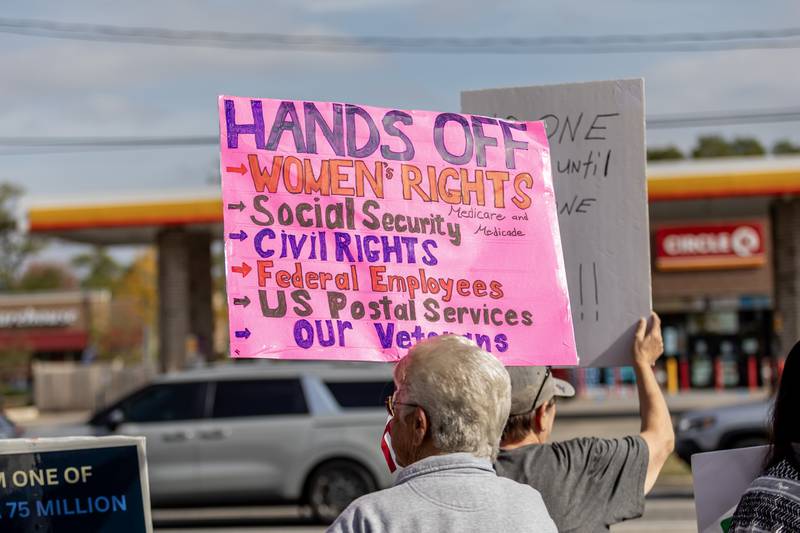 HANDS OFF
→ WOMEN's RIGHTS
→ Social Security Medicare and
Medicade
→ CiviL RIGHTS
→ Federal Employees
→ US Postal Services
→ OUR Veterans
ONE
until
NE
!!
CIRCLE K
M ONE OF
75 MILLION